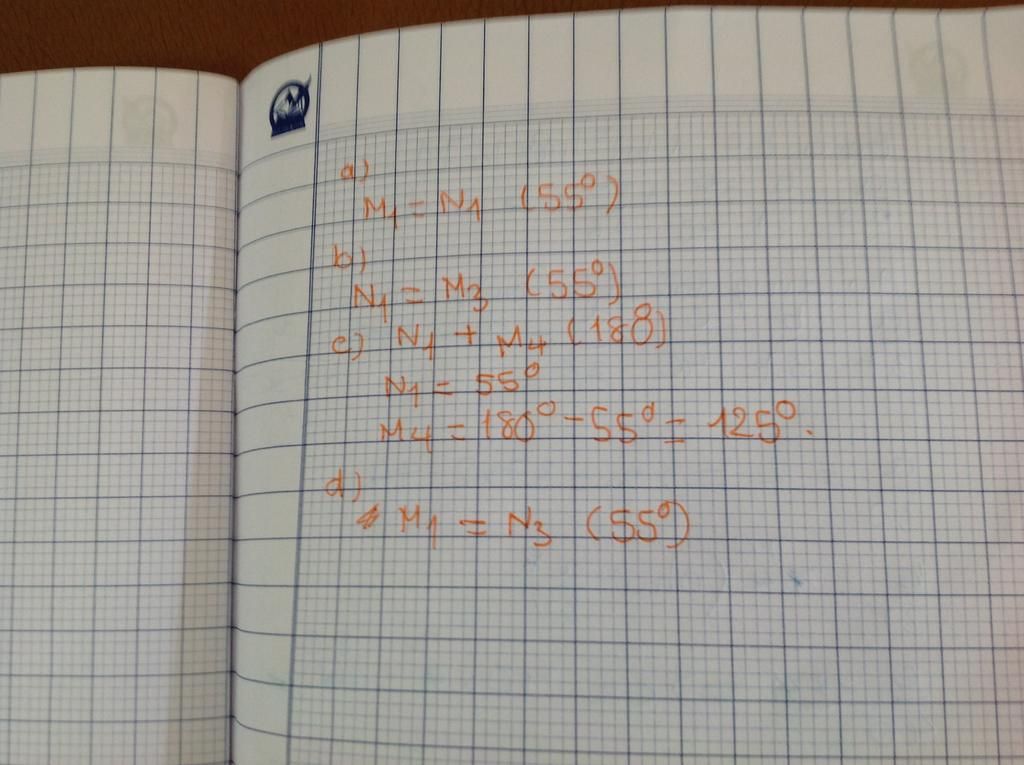 a)
M1 = N1 (55°)
b)
N1 = M3 (55°)
c) N1 + M4 (180)
N1 = 55°
M4 = 180° - 55° = 125°.
d)
M1 = N3 (55°)